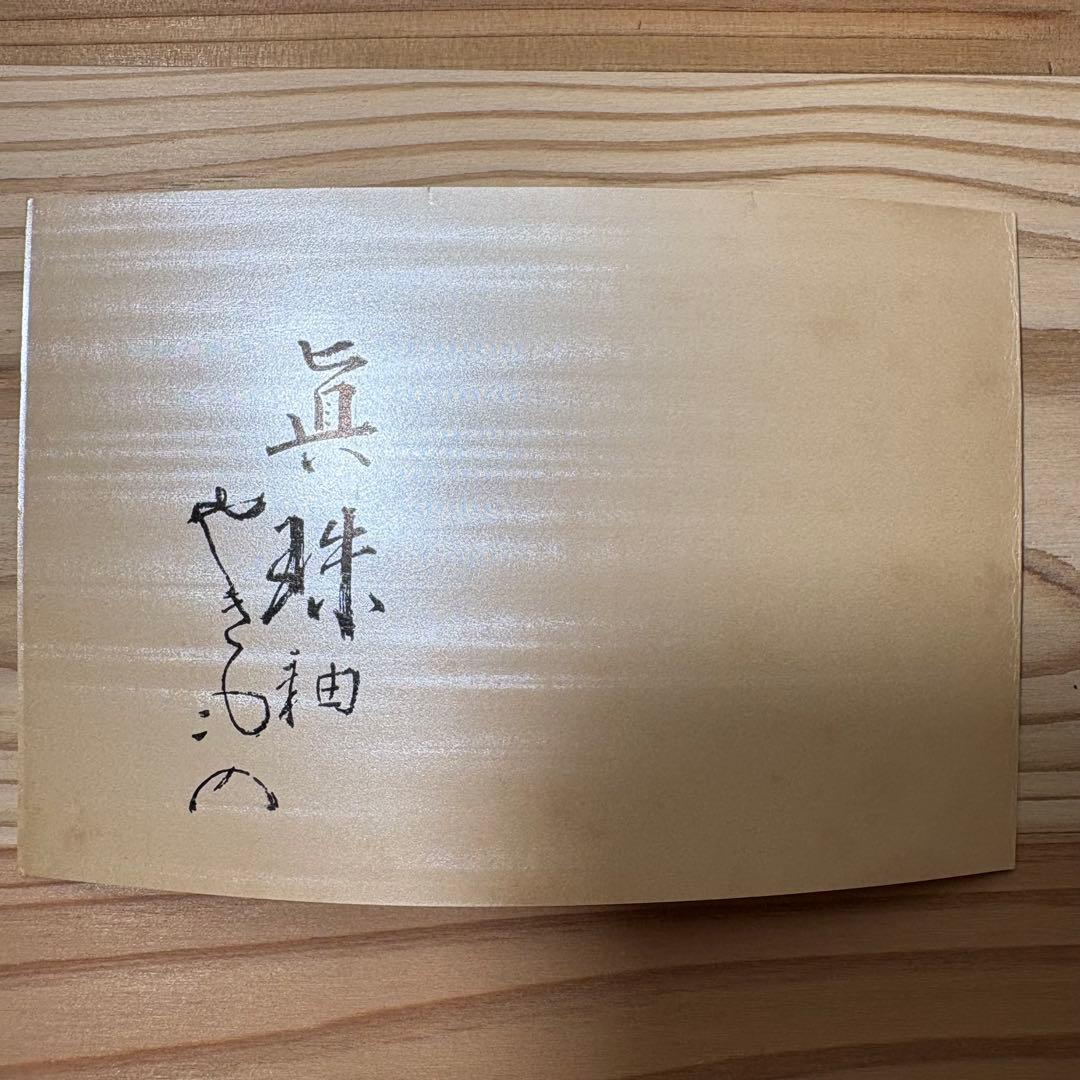 眞珠釉
やきもの